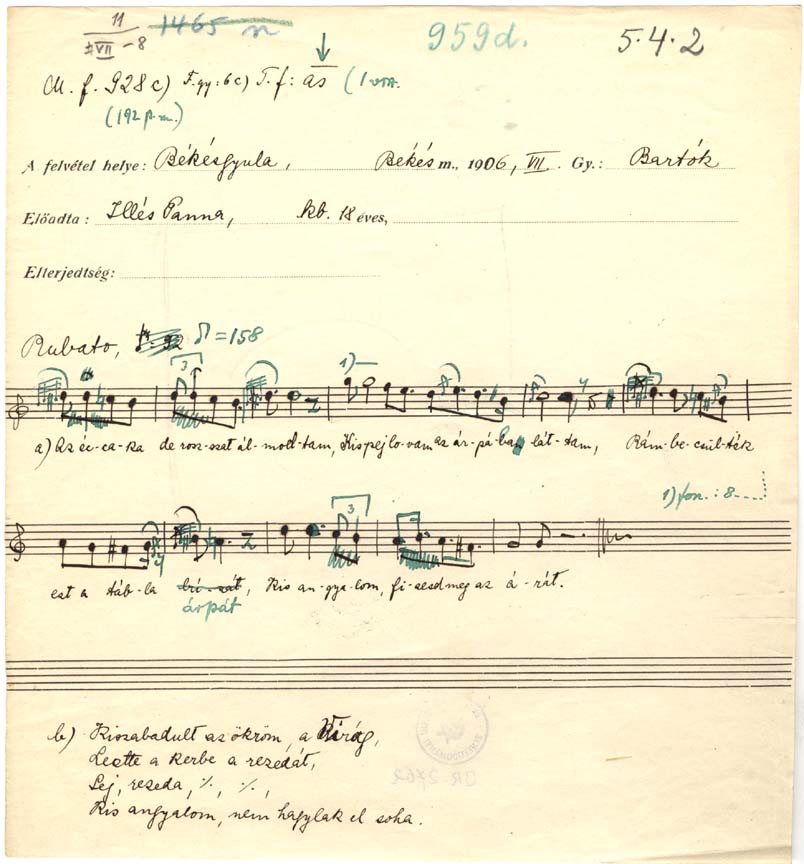 11
VII -8
1465 n
959d.
5.4.2
M. f. 928 c) F. gy: 6 c) T. f: as
(192 p.m.)
A felvétel helye: Békésgyula, Békés m., 1906, VII. Gy.: Bartók
Előadta: Illés Panna, kb. 18 éves,
Elterjedtség:
Rubato, = 158
3
1)
a) Az éi-ca-ka de rosz-szat ál-mod-tam, Kis pej lo-vam az ár-pá-ban lát-tam, Rám-be-csül-ték
1) fon. : 8
3
ezt a táb-la bú-zát, Kis an-gya-lom, fi-zesd meg az á-rát.
árpát
b) Kiszabadult az ökröm, a Virág,
Leette a kerbe a rezedát,
Sej, rezeda, ·/., ·/.,
Kis angyalom, nem hagylak el soha.